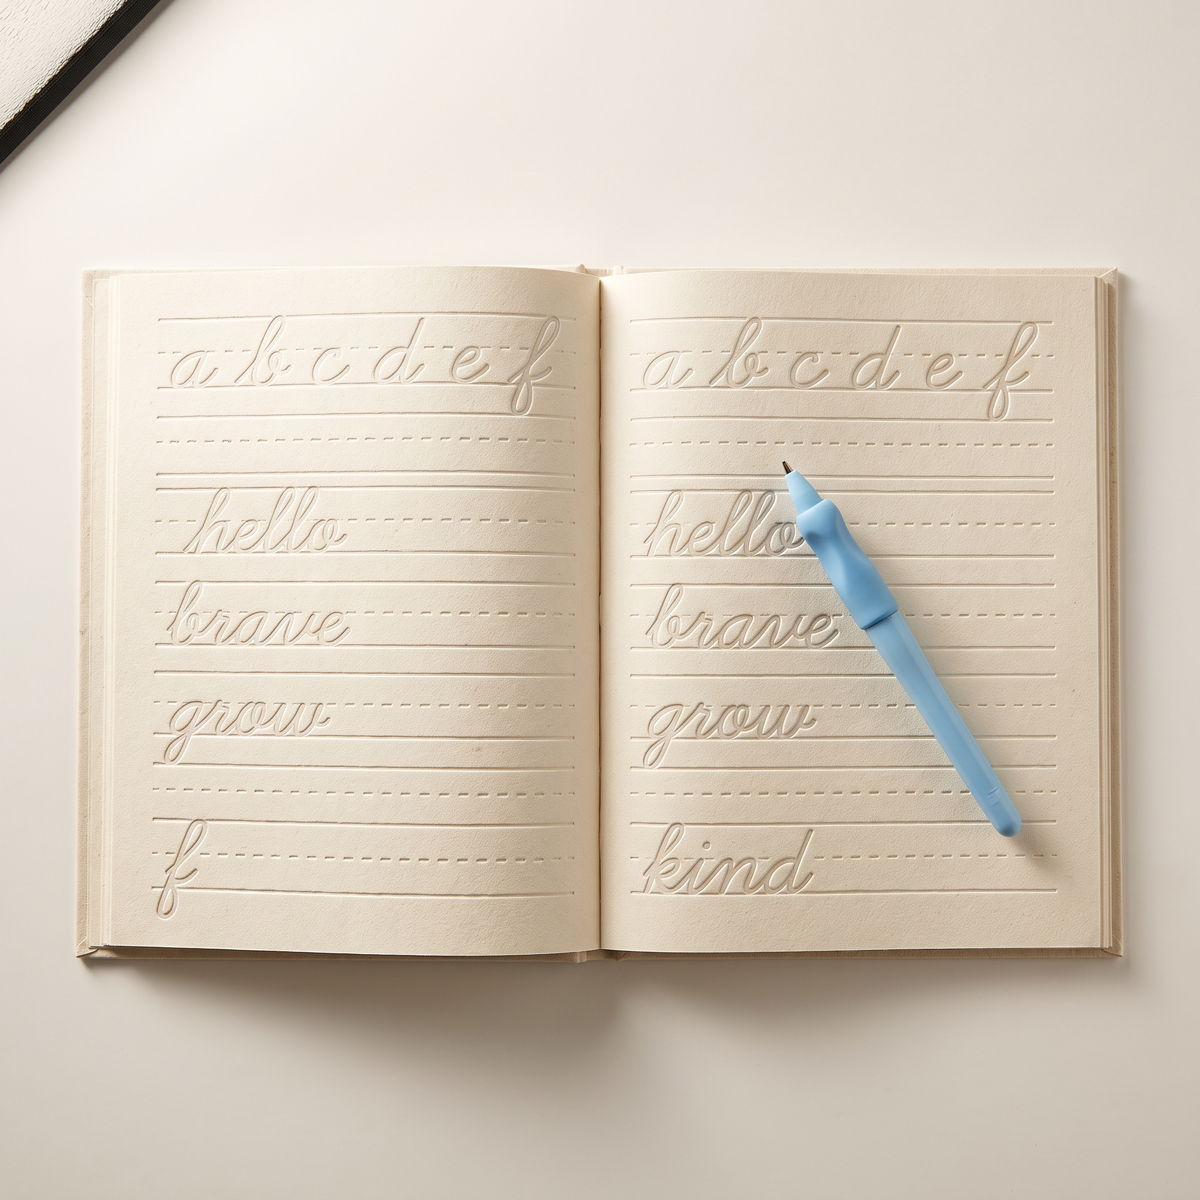 a b c d e f
hello
brave
grow
f
a b c d e f
hello
brave
grow
kind